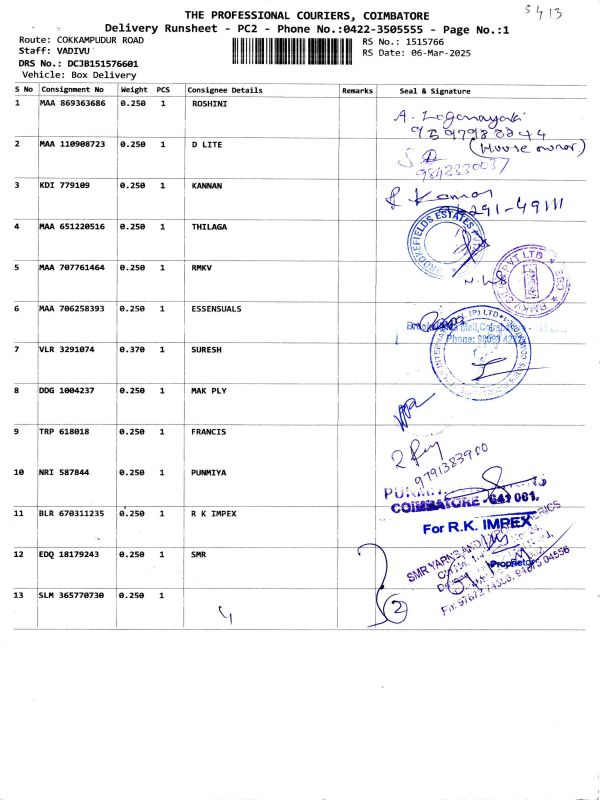 5413
THE PROFESSIONAL COURIERS, COIMBATORE
Delivery Runsheet - PC2 - Phone No.:0422-3505555 - Page No.:1
Route: COKKAMPUDUR ROAD
RS No.: 1515766
Staff: VADIVU
RS Date: 06-Mar-2025
DRS No.: DCJB151576601
Vehicle: Box Delivery
S No Consignment No Weight PCS Consignee Details Remarks Seal & Signature
1 MAA 869363686 0.250 1 ROSHINI
2 MAA 110908723 0.250 1 D LITE (House owner)
9842330037
3 KDI 779109 0.250 1 KANNAN
4 MAA 651220516 0.250 1 THILAGA
BROOKEFIELDS ESTATES
5 MAA 707761464 0.250 1 RMKV
6 MAA 706258393 0.250 1 ESSENSUALS
7 VLR 3291074 0.370 1 SURESH
8 DDG 1004237 0.250 1 MAK PLY
9 TRP 618018 0.250 1 FRANCIS
9791383900
10 NRI 587844 0.250 1 PUNMIYA
COIMBATORE - 641 001.
11 BLR 670311235 0.250 1 R K IMPEX
For R.K. IMPEX
Proprietor
12 EDQ 18179243 0.250 1 SMR
SMR YARNS AND
13 SLM 365770730 0.250 1
2